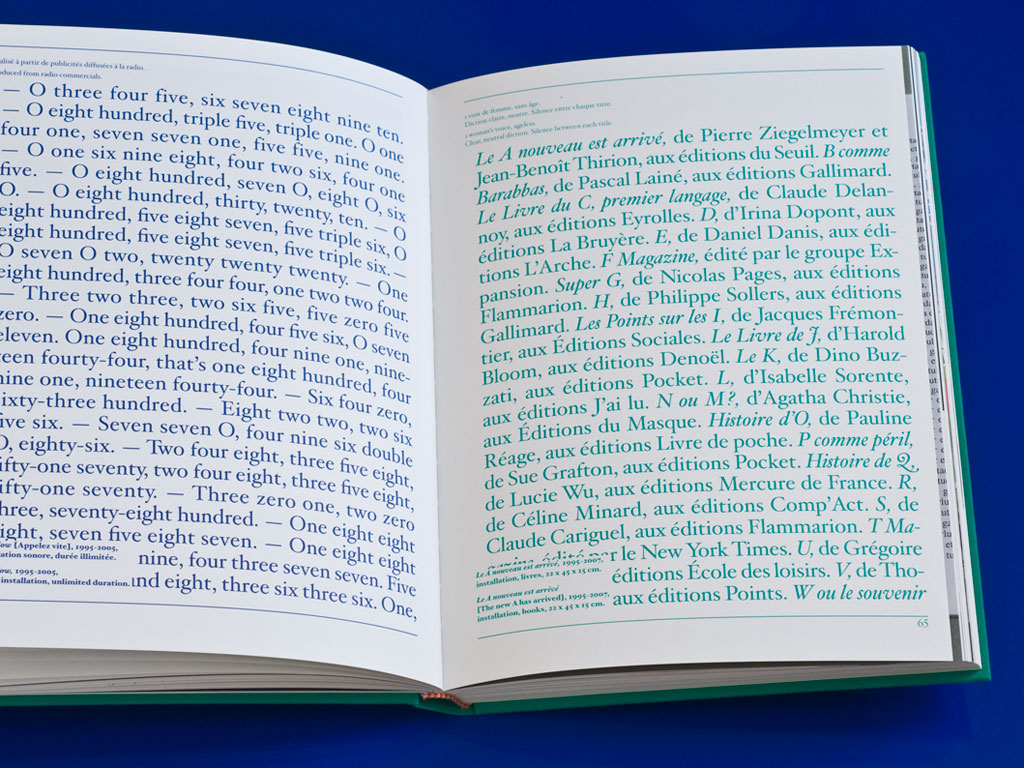 alisé à partir de publicités diffusées à la radio.
oduced from radio commercials.
— O three four five, six seven eight nine ten.
— O eight hundred, triple five, triple one. O one
four one, seven seven one, five five, nine one.
— O one six nine eight, four two six, four one
five. — O eight hundred, seven O, eight O, six
O. — O eight hundred, thirty, twenty, ten. — O
eight hundred, five eight seven, five triple six, O
eight hundred, five eight seven, five triple six. —
O seven O two, twenty twenty twenty. — One
eight hundred, three four four, one two two four.
— Three two three, two six five, five zero five
zero. — One eight hundred, four five six, O seven
eleven. One eight hundred, four nine one, nine-
teen fourty-four, that's one eight hundred, four
nine one, nineteen fourty-four. — Six four zero,
sixty-three hundred. — Eight two two, two six
five six. — Seven seven O, four nine six double
O, eighty-six. — Two four eight, three five eight,
fifty-one seventy, two four eight, three five eight,
fifty-one seventy. — Three zero one, two zero
three, seventy-eight hundred. — One eight eight
eight, seven five eight seven. — One eight eight
nine, four three seven seven. Five
and eight, three six three six. One,
[Appelez vite], 1995-2005,
ation sonore, durée illimitée.
1995-2005,
installation, unlimited duration.
1 voix de femme, sans âge.
Diction claire, neutre. Silence entre chaque titre.
1 woman's voice, ageless.
Clear, neutral diction. Silence between each title.
Le A nouveau est arrivé, de Pierre Ziegelmeyer et
Jean-Benoît Thirion, aux éditions du Seuil. B comme
Barabbas, de Pascal Lainé, aux éditions Gallimard.
Le Livre du C, premier langage, de Claude Delan-
noy, aux éditions Eyrolles. D, d'Irina Dopont, aux
éditions La Bruyère. E, de Daniel Danis, aux édi-
tions L'Arche. F Magazine, édité par le groupe Ex-
pansion. Super G, de Nicolas Pages, aux éditions
Flammarion. H, de Philippe Sollers, aux éditions
Gallimard. Les Points sur les I, de Jacques Frémon-
tier, aux Éditions Sociales. Le Livre de J, d'Harold
Bloom, aux éditions Denoël. Le K, de Dino Buz-
zati, aux éditions Pocket. L, d'Isabelle Sorente,
aux éditions J'ai lu. N ou M?, d'Agatha Christie,
aux Éditions du Masque. Histoire d'O, de Pauline
Réage, aux éditions Livre de poche. P comme péril,
de Sue Grafton, aux éditions Pocket. Histoire de Q,
de Lucie Wu, aux éditions Mercure de France. R,
de Céline Minard, aux éditions Comp'Act. S, de
Claude Cariguel, aux éditions Flammarion. T Ma-
édité par le New York Times. U, de Grégoire
éditions École des loisirs. V, de Tho-
aux éditions Points. W ou le souvenir
Le A nouveau est arrivé, 1995-2007,
installation, livres, 22 x 45 x 15 cm.
Le A nouveau est arrivé
[The new A has arrived], 1995-2007,
installation, books, 22 x 45 x 15 cm.
65